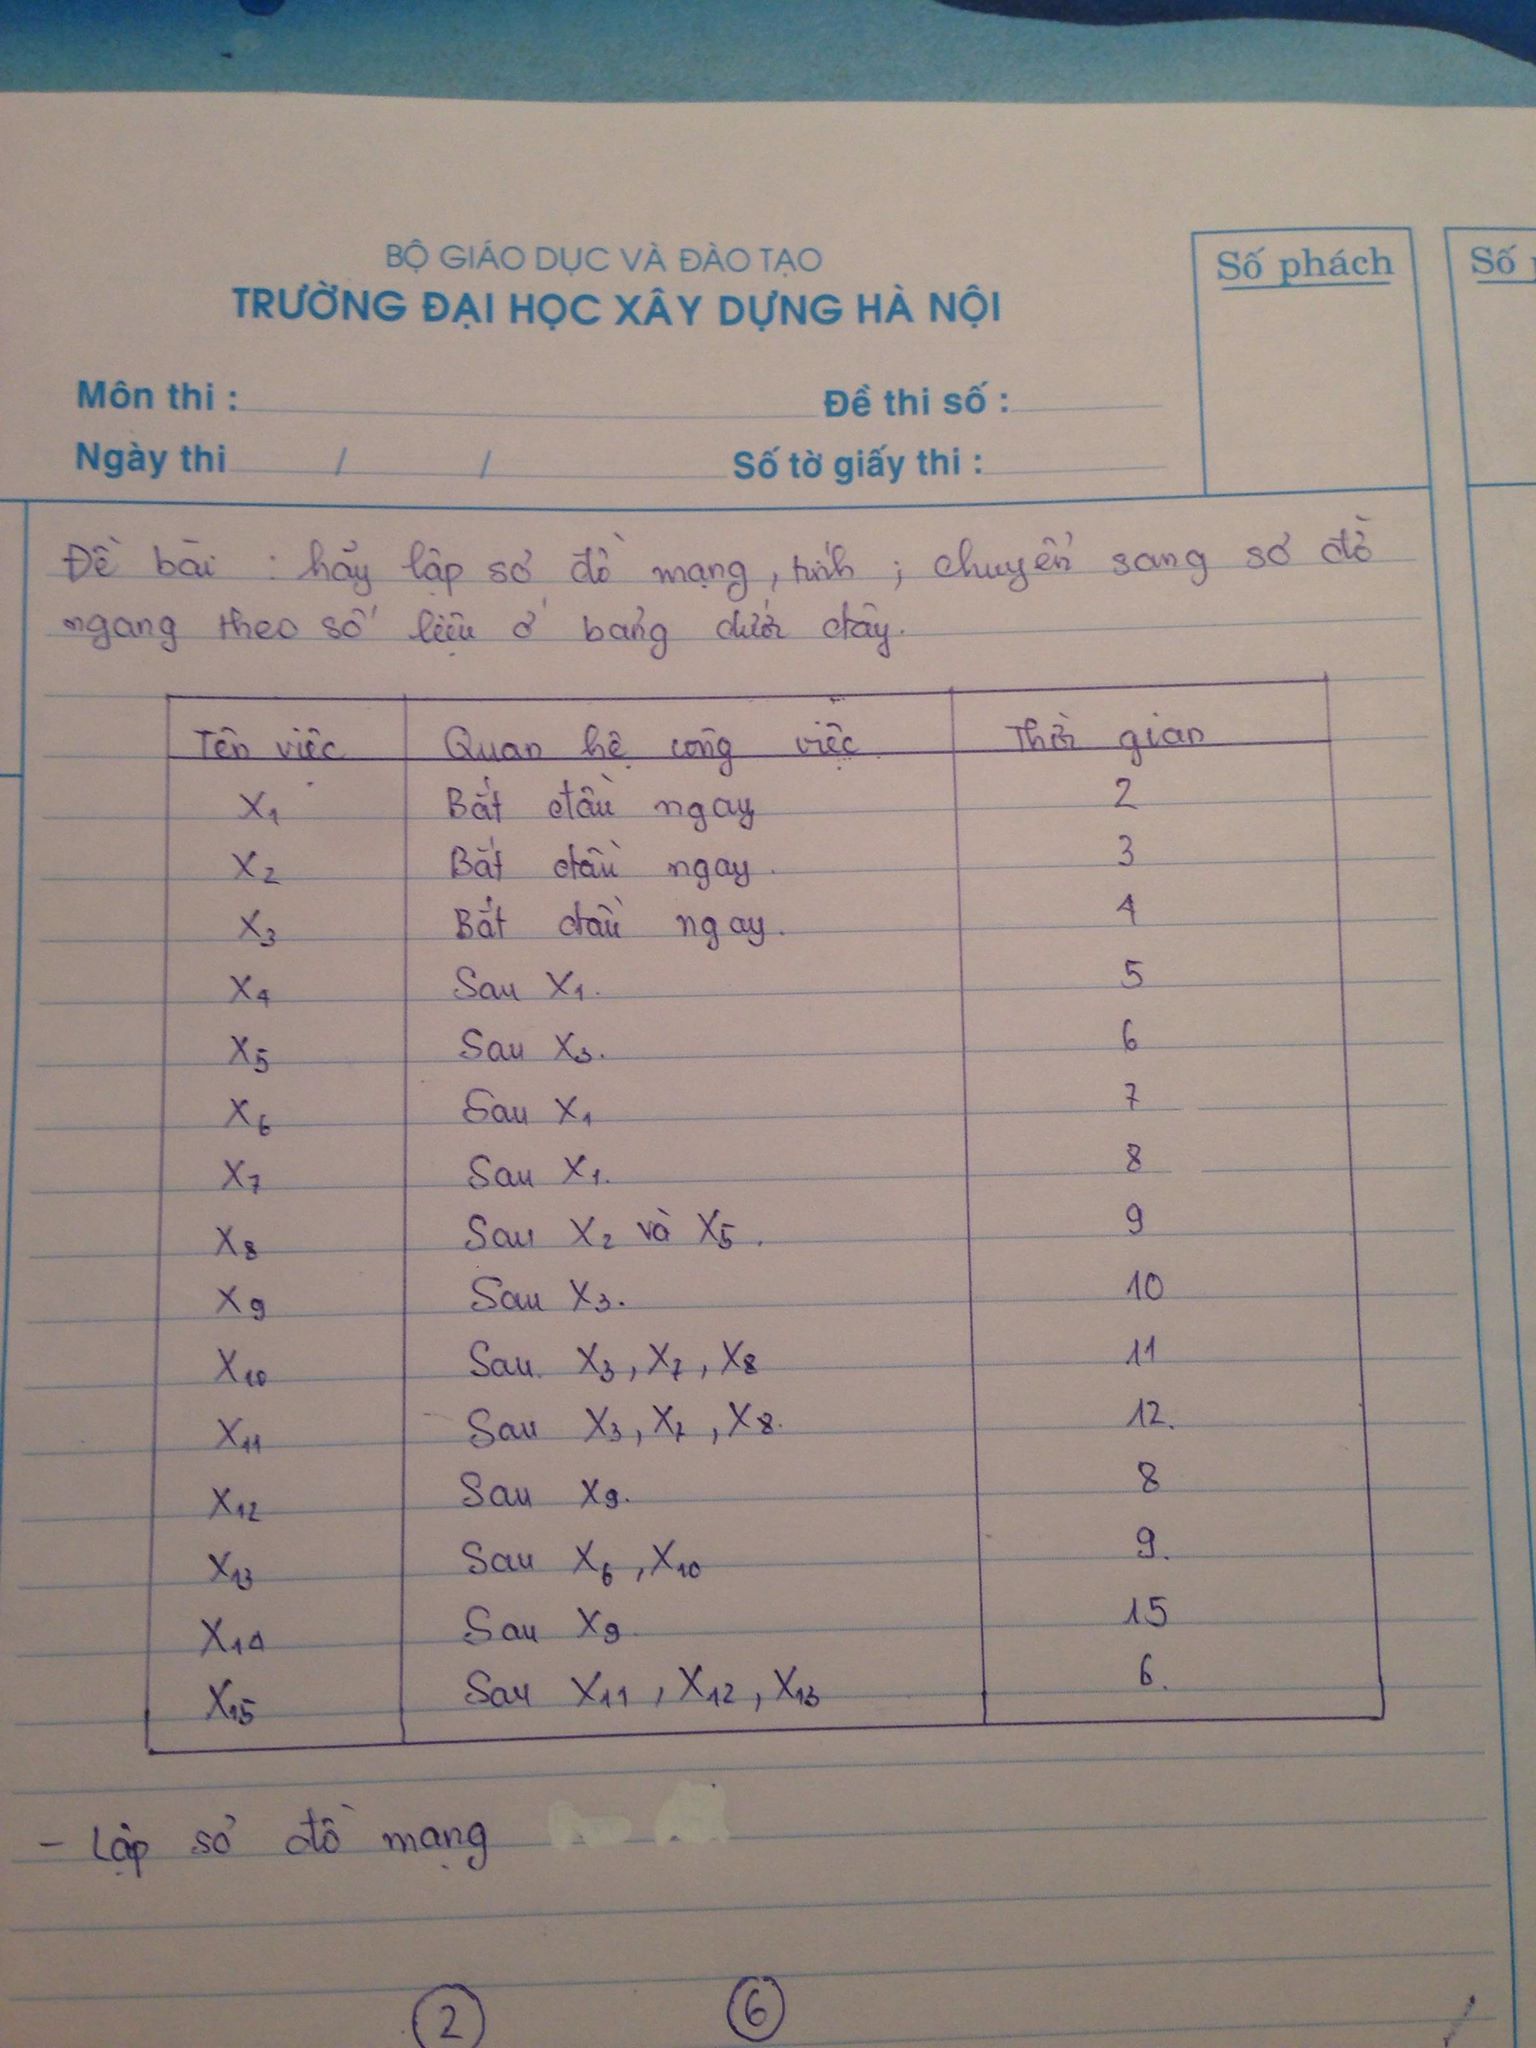 BỘ GIÁO DỤC VÀ ĐÀO TẠO
TRƯỜNG ĐẠI HỌC XÂY DỰNG HÀ NỘI
Số phách
Số
Môn thi :
Đề thi số :
Ngày thi / /
Số tờ giấy thi :
Đề bài : hãy lập sơ đồ mạng, tính ; chuyển sang sơ đồ
ngang theo số liệu ở bảng dưới đây.
Tên việc Quan hệ công việc Thời gian
X1 Bắt đầu ngay 2
X2 Bắt đầu ngay. 3
X3 Bắt đầu ngay. 4
X4 Sau X1. 5
X5 Sau X3. 6
X6 Sau X1 7
X7 Sau X1. 8
X8 Sau X2 và X5. 9
X9 Sau X3. 10
X10 Sau X3, X7, X8 11
X11 Sau X3, X7, X8. 12.
X12 Sau X9. 8
X13 Sau X6, X10 9.
X14 Sau X9. 15
X15 Sau X11, X12, X13 6.
- Lập sơ đồ mạng
2 6